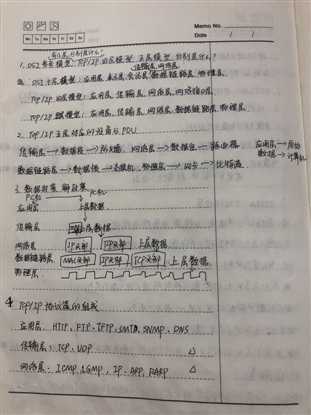 Memo No.
Mo Tu We Th Fr Sa Su
Date / /
每层分别是什么?
1. OSI 七层模型, TCP/IP 四层模型 五层模型 分别是什么?
传输层, 网络层
OSI 七层模型: 应用层 表示层 会话层 数据链路层 物理层.
TCP/IP 四层模型: 应用层, 传输层, 网络层, 网络接口层.
TCP/IP 五层模型: 应用层, 传输层 网络层 数据链路层 物理层.
2. TCP/IP 五层对应的设备与PDU
传输层 → 数据段 → 防火墙, 网络层 → 数据包 → 路由器, 应用层 → 原始数据 → 计算机
数据链路层 → 数据帧 → 交换机, 物理层 → 网卡 → 比特流
3. 数据封装 解封装
PC机 PC机
应用层 上层数据
传输层 上层数据
网络层 IP头部 上层数据
数据链路层 MAC头部 IP头部 TCP头部 上层数据
物理层
4 TCP/IP 协议簇的组成
应用层: HTTP, FTP, TFTP, SMTP, SNMP, DNS
传输层: TCP, UDP
网络层: ICMP, IGMP, IP, ARP, RARP